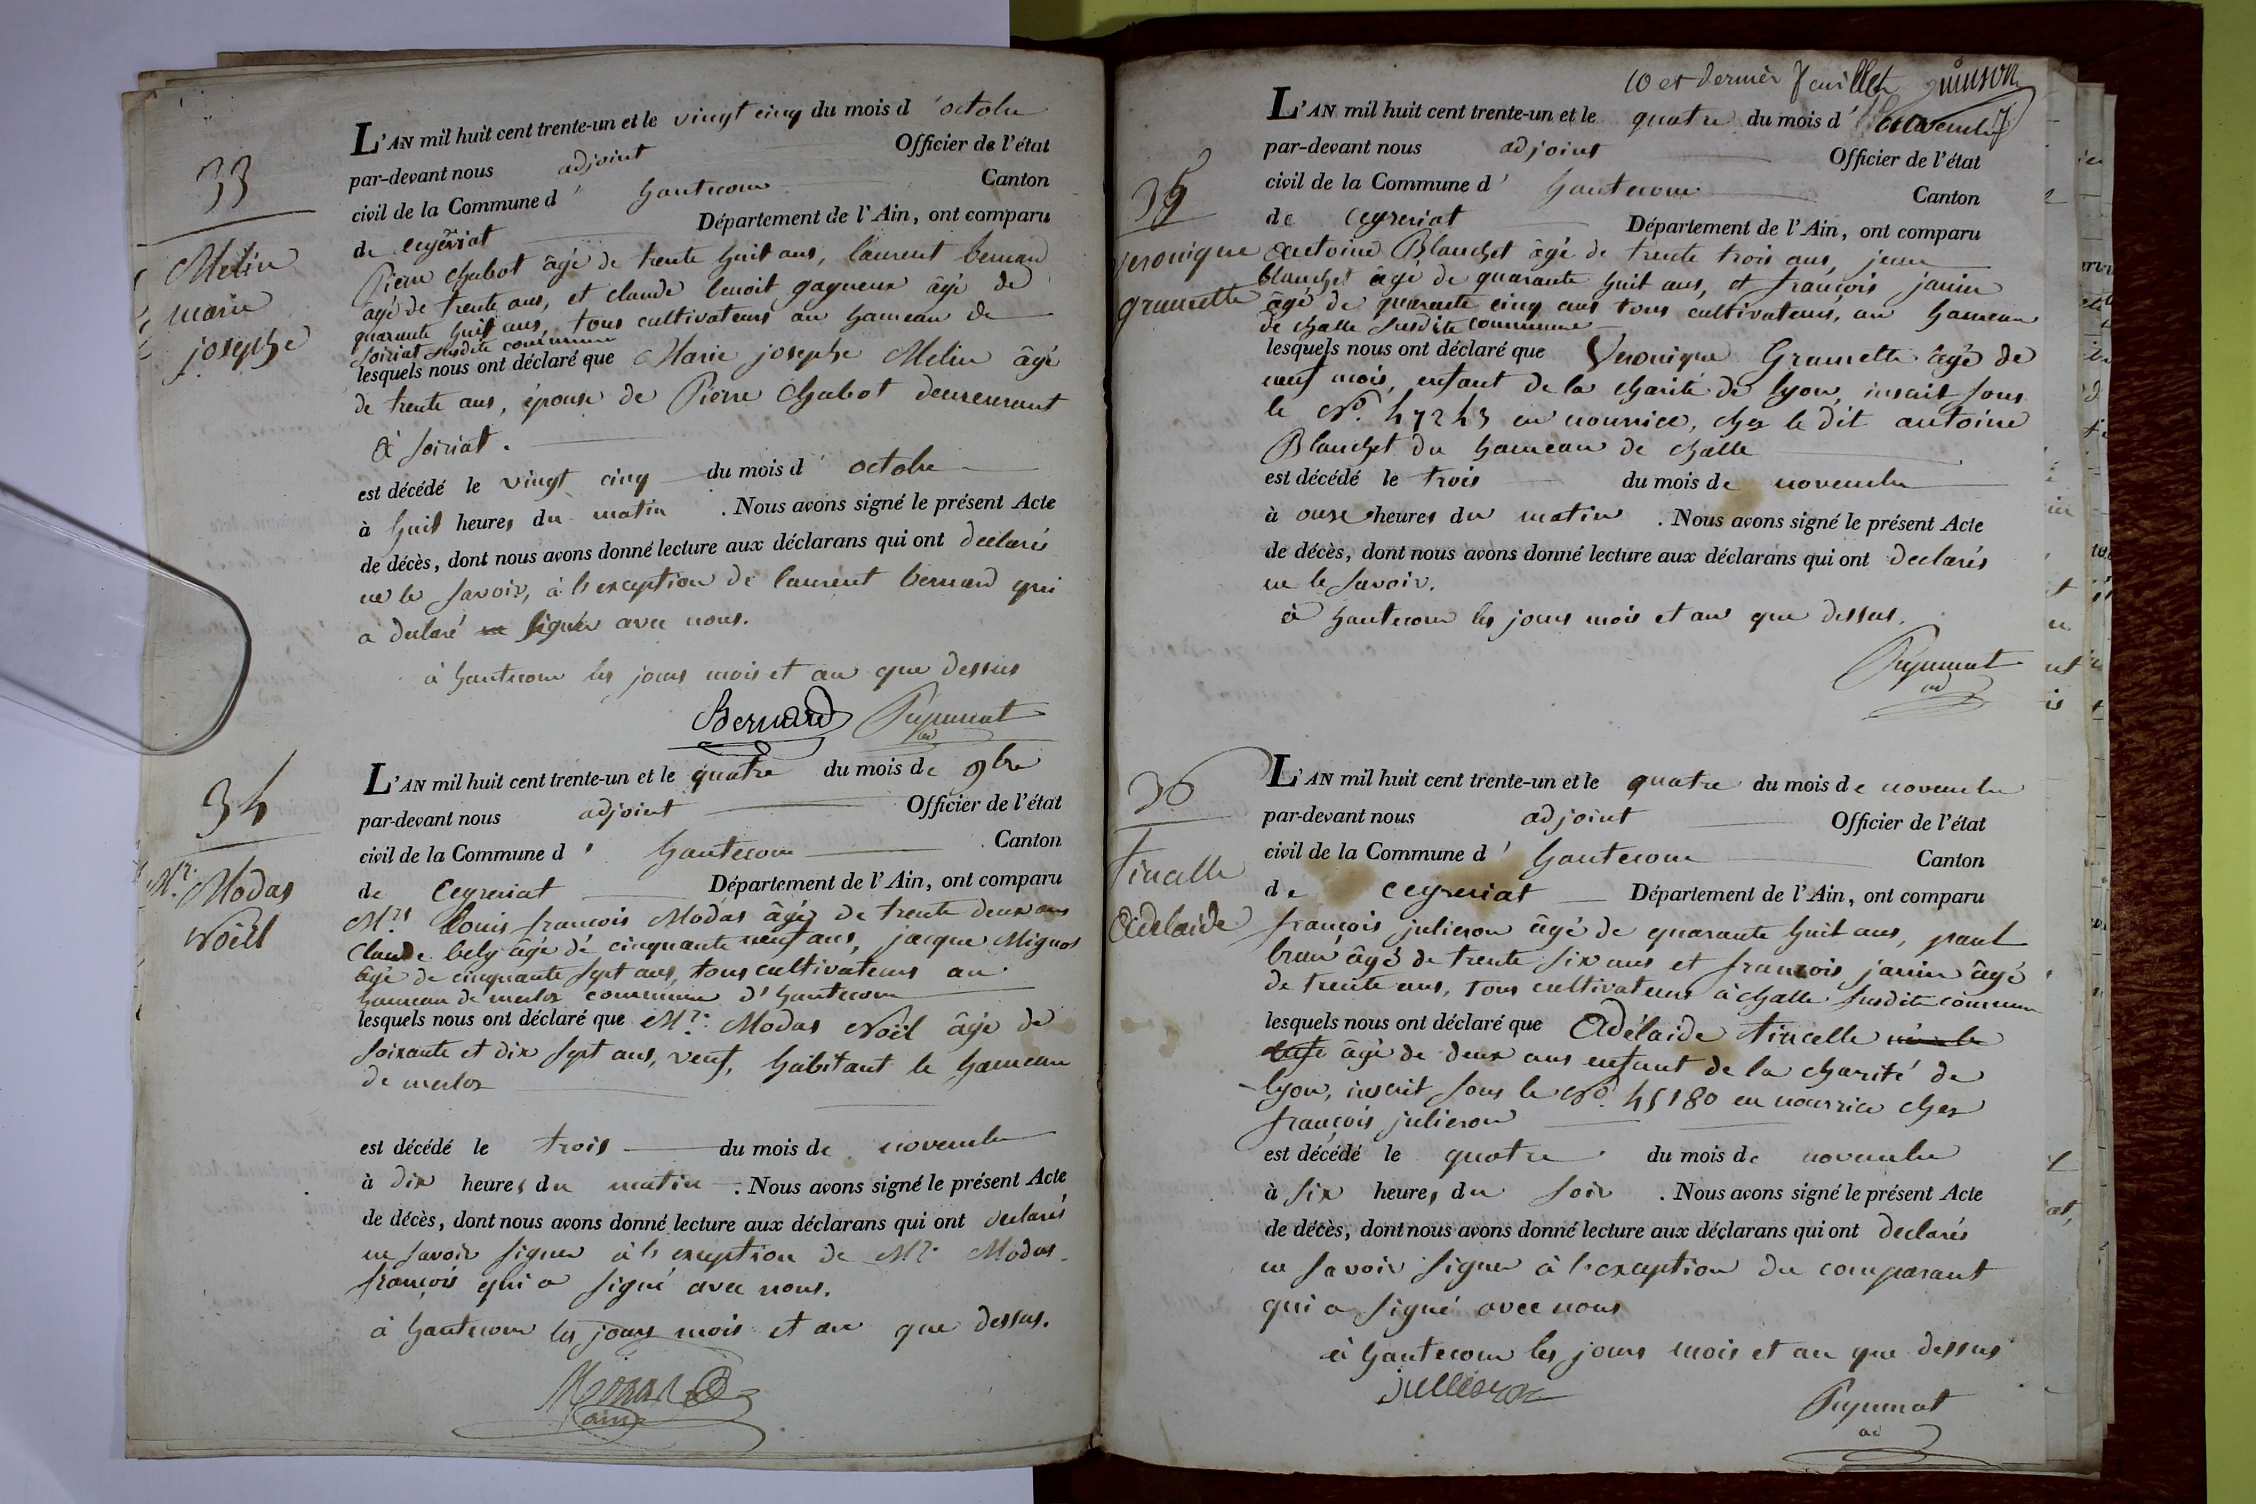 33
Melin
marie
josephe
L'AN mil huit cent trente-un et le vingt cinq du mois d'octobre
par-devant nous adjoint Officier de l'état
civil de la Commune d'hautecour Canton
de ceyzériat Département de l'Ain, ont comparu
Pierre Chabot âgé de trente huit ans, laurent bernard
âgé de trente ans, et claude benoit gagneux âgé de
quarante huit ans, tous cultivateurs au hameau de
soiriat susdite commune
lesquels nous ont déclaré que Marie josephe Melin âgé
de trente ans, épouse de Pierre Chabot demeurant
à soiriat.
est décédé le vingt cinq du mois d'octobre
à huit heures du matin. Nous avons signé le présent Acte
de décès, dont nous avons donné lecture aux déclarans qui ont declarés
ne le savoir, à l'exception de laurent bernard qui
a declaré ne signer avec nous.
à hautecour les jours mois et an que dessus
Bernard
34
Mr. Modas
Noël
L'AN mil huit cent trente-un et le quatre du mois de 9bre
par-devant nous adjoint Officier de l'état
civil de la Commune d'hautecour Canton
de Ceyzeriat Département de l'Ain, ont comparu
Mrs Louis francois Modas âgé de trente deux ans
Claude bely âgé de cinquante neuf ans, jacque Mignot
âgé de cinquante sept ans, tous cultivateurs au
hameau de merloz commune d'hautecour
lesquels nous ont déclaré que Mr. Modas Noël âgé de
soixante et dix sept ans, veuf, habitant le hameau
de merloz
est décédé le trois du mois de novembre
à dix heures du matin. Nous avons signé le présent Acte
de décès, dont nous avons donné lecture aux déclarans qui ont declarés
ne savoir signer à l'exception de Mr. Modas
françois qui a signé avec nous.
à hautecour les jours mois et an que dessus.
10 et dernier feuillet
35
veronique
gramette
L'AN mil huit cent trente-un et le quatre du mois d' novembre
par-devant nous adjoint Officier de l'état
civil de la Commune d'hautecour Canton
de ceyzeriat Département de l'Ain, ont comparu
Antoine Blanchet âgé de trente trois ans, jean
blanchet âgé de quarante huit ans, et françois janin
âgé de quarante cinq ans tous cultivateurs, au hameau
de challe susdite commune
lesquels nous ont déclaré que Veronique Gramette âgé de
neuf mois, enfant de la charité de lyon, inscrit sous
le No. 47243 en nourrice, chez le dit antoine
Blanchet du hameau de challe
est décédé le trois du mois de novembre
à onze heures du matin. Nous avons signé le présent Acte
de décès, dont nous avons donné lecture aux déclarans qui ont declarés
ne le savoir.
à hautecour les jours mois et an que dessus.
36
Tincelle
Adelaide
L'AN mil huit cent trente-un et le quatre du mois de novembre
par-devant nous adjoint Officier de l'état
civil de la Commune d'hautecour Canton
de ceyzeriat Département de l'Ain, ont comparu
françois julieron âgé de quarante huit ans, paul
âgé de trente six ans et françois janin âgé
de trente ans, tous cultivateurs à challe susdite commune
lesquels nous ont déclaré que Adélaide tincelle
âgé de deux ans enfant de la charité de
lyon, inscrit sous le No. 45180 en nourrice chez
françois julieron
est décédé le quatre du mois de novembre
à six heures du soir. Nous avons signé le présent Acte
de décès, dont nous avons donné lecture aux déclarans qui ont declarés
ne savoir signer à l'exception du comparant
qui a signé avec nous
à hautecour les jours mois et an que dessus
julleron